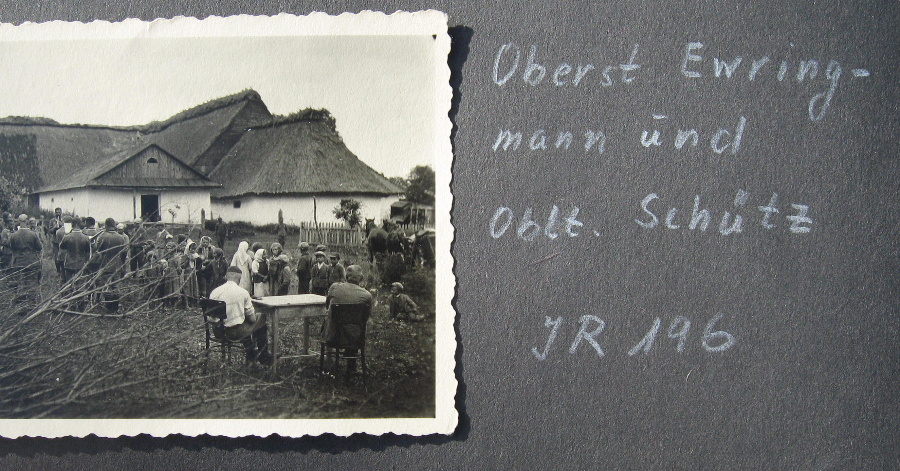 Oberst Ewring-
mann und
Oblt. Schütz
JR 196